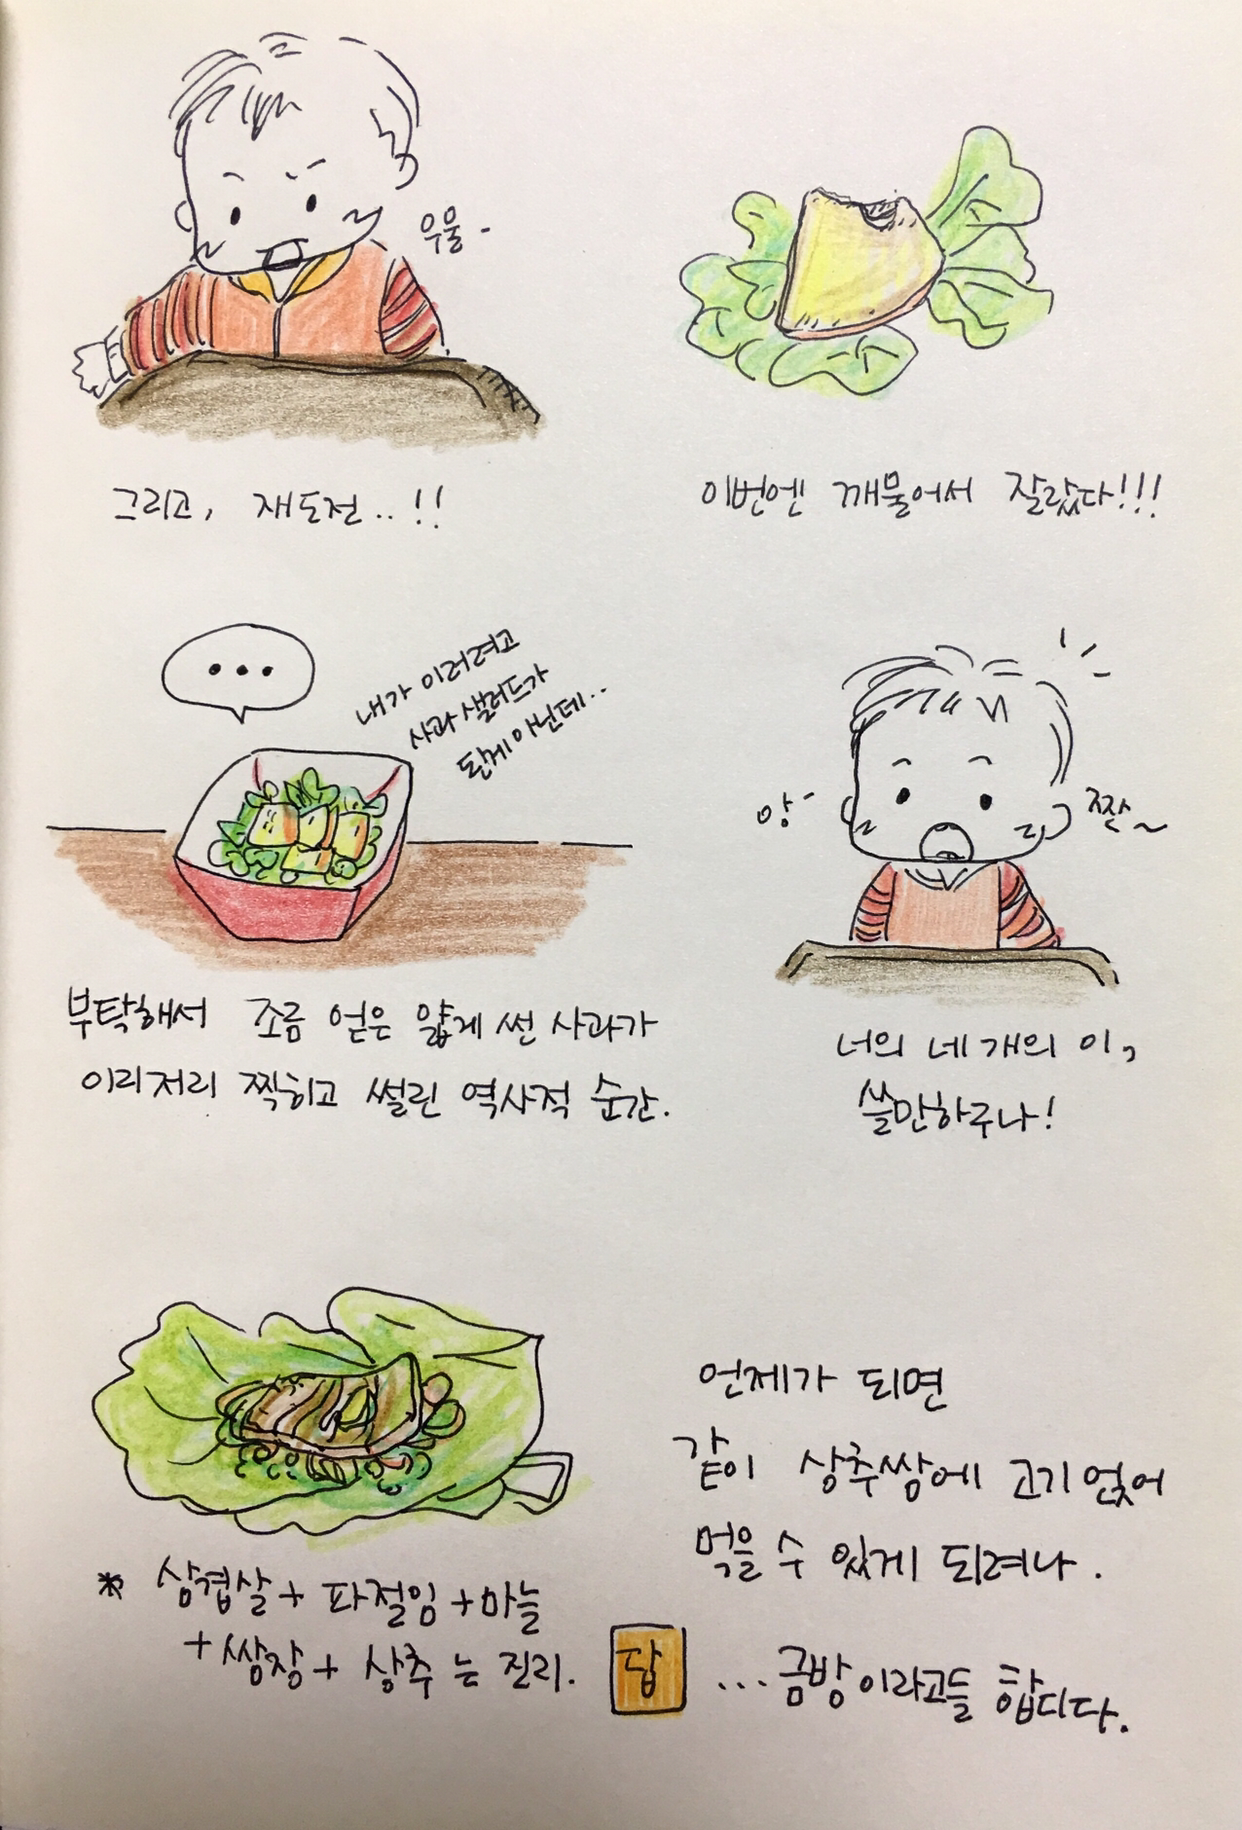 우울-
그리고, 재도전..!!
이번엔 깨물어서 잘랐다!!!
...
내가 이러려고
사과 샐러드가
된게 아닌데..
부탁해서 조금 얻은 얇게 썬 사과가
이리저리 찍히고 썰린 역사적 순간.
앙-
짠~
너의 네 개의 이,
쓸만하구나!
* 삼겹살+파절임+마늘
+쌈장+상추는 진리.
언제가 되면
같이 상추쌈에 고기 얹어
먹을 수 있게 되려나.
답 ...금방이라고들 합디다.